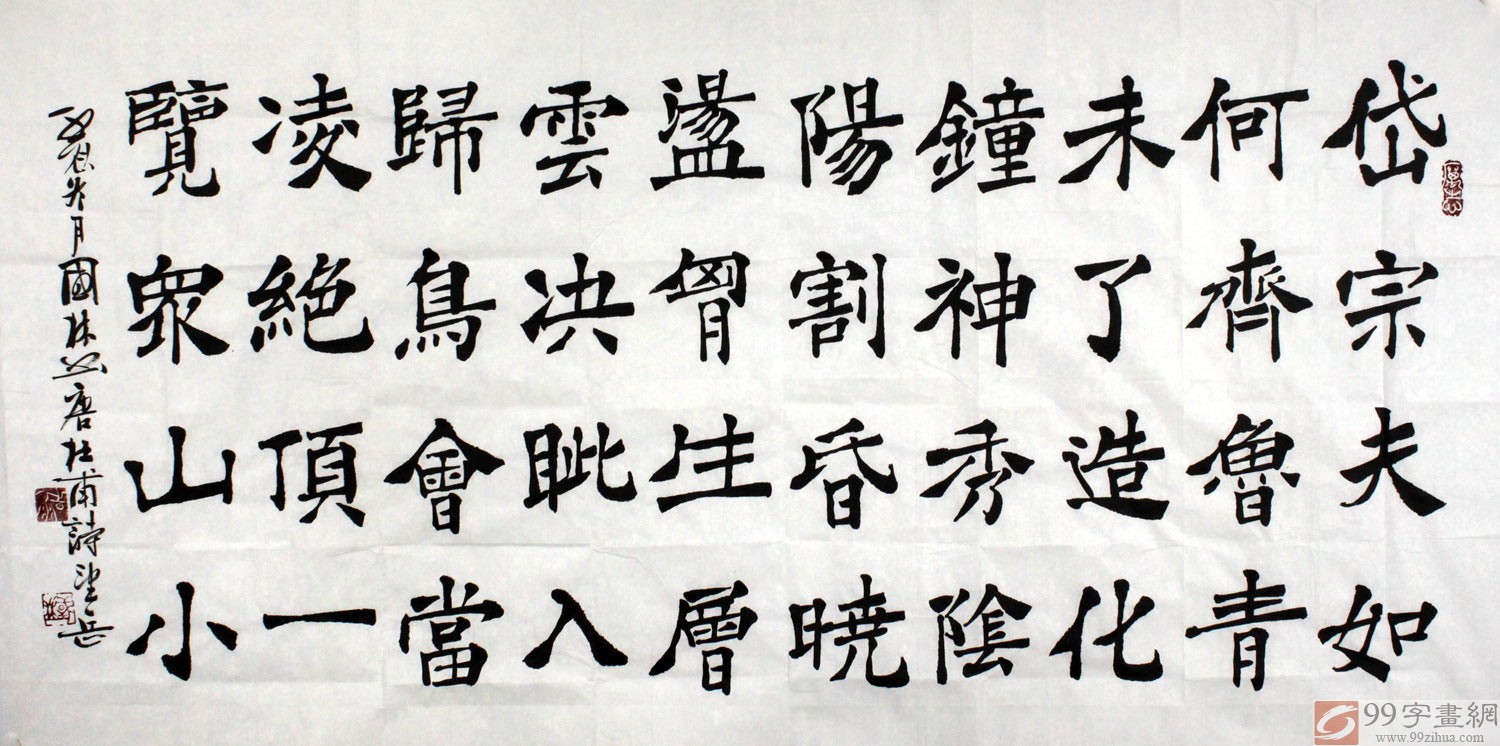 岱宗夫如
何齊魯青
未了造化
鐘神秀陰
陽割昏曉
盪胷生層
雲決眦入
歸鳥會當
凌絕頂一
覽眾山小
月國林書唐杜甫詩望岳
99字畫網
www.99zihua.com